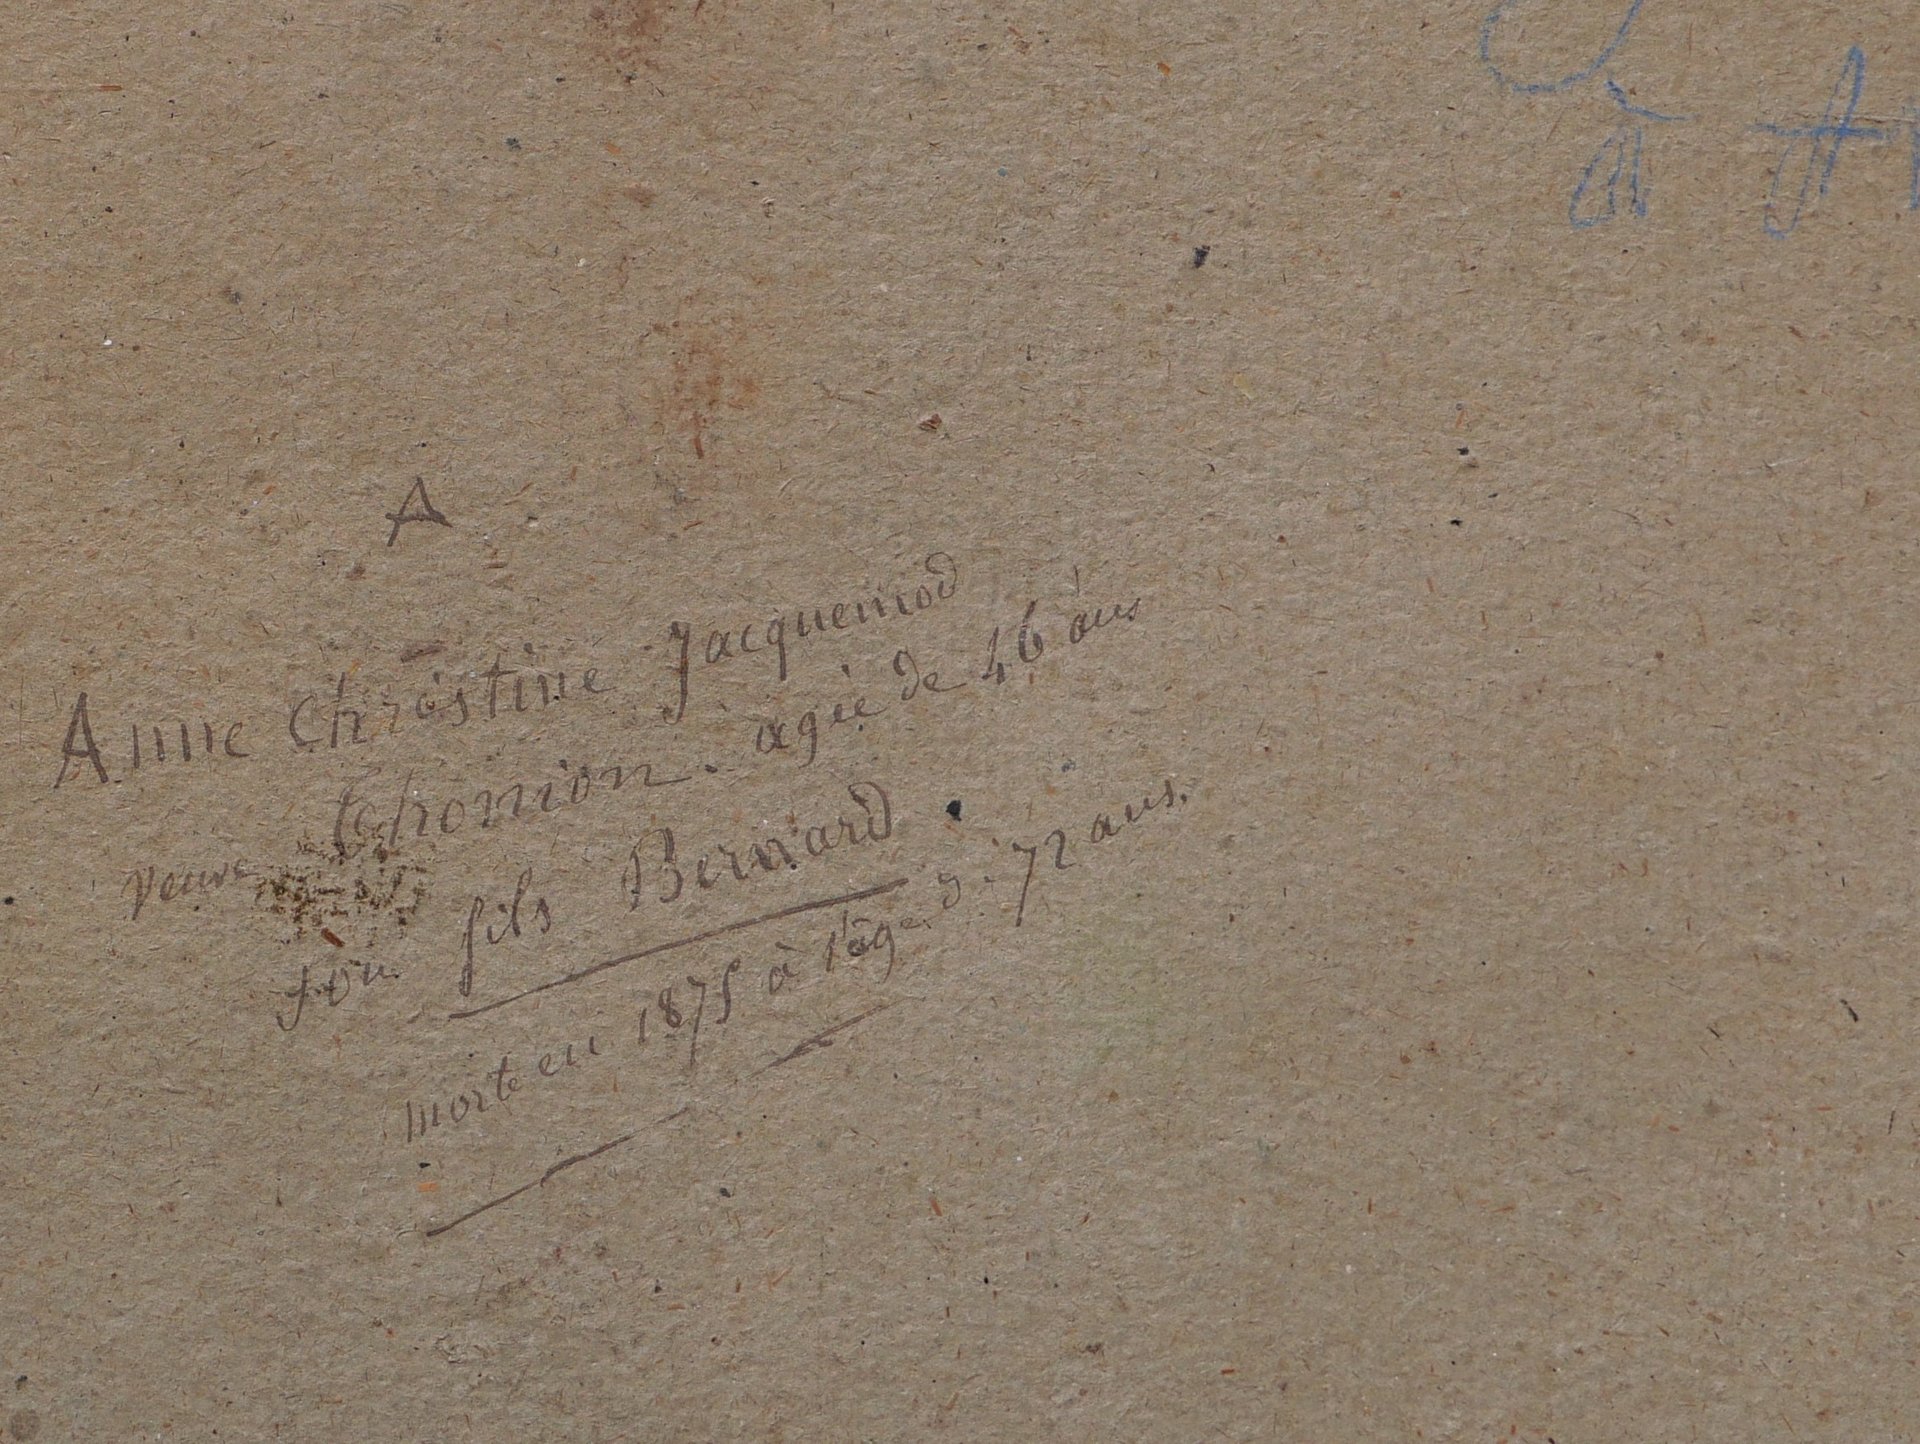 à
A
Anne Christine Jacquemod
veuve Thonion. agée de 46 ans
son fils Bernard
morte en 1875 à l'âge de 72 ans.